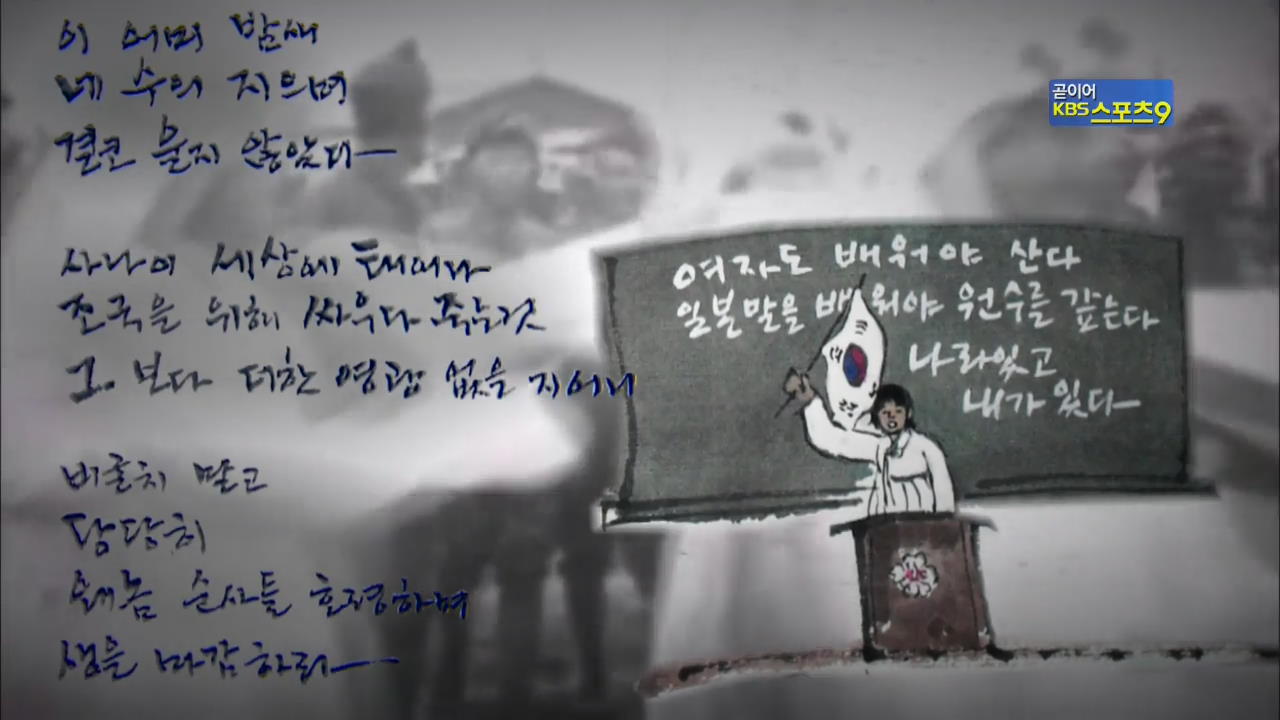 이 어미 밤새
네 수의 지으며
결코 울지 않았다—
사나이 세상에 태어나
조국을 위해 싸우다 죽는것
그 보다 더한 영광 없을 지어니
비굴치 말고
당당히
왜놈 순사들 호령하며
생을 마감하라—
곧이어
KBS 스포츠9
여자도 배워야 산다
일본말을 배워야 원수를 갚는다
나라있고
내가 있다—